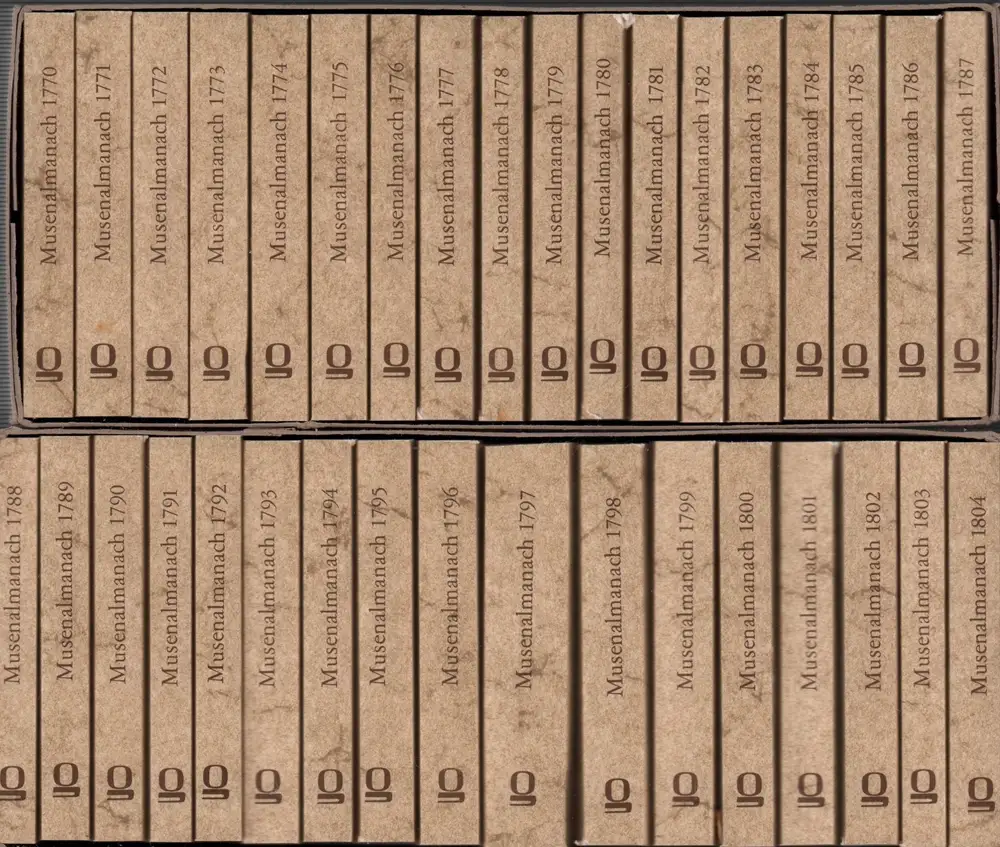 Musenalmanach 1770
Musenalmanach 1771
Musenalmanach 1772
Musenalmanach 1773
Musenalmanach 1774
Musenalmanach 1775
Musenalmanach 1776
Musenalmanach 1777
Musenalmanach 1778
Musenalmanach 1779
Musenalmanach 1780
Musenalmanach 1781
Musenalmanach 1782
Musenalmanach 1783
Musenalmanach 1784
Musenalmanach 1785
Musenalmanach 1786
Musenalmanach 1787
Musenalmanach 1788
Musenalmanach 1789
Musenalmanach 1790
Musenalmanach 1791
Musenalmanach 1792
Musenalmanach 1793
Musenalmanach 1794
Musenalmanach 1795
Musenalmanach 1796
Musenalmanach 1797
Musenalmanach 1798
Musenalmanach 1799
Musenalmanach 1800
Musenalmanach 1801
Musenalmanach 1802
Musenalmanach 1803
Musenalmanach 1804